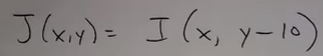 J(x,y) = I(x, y-10)